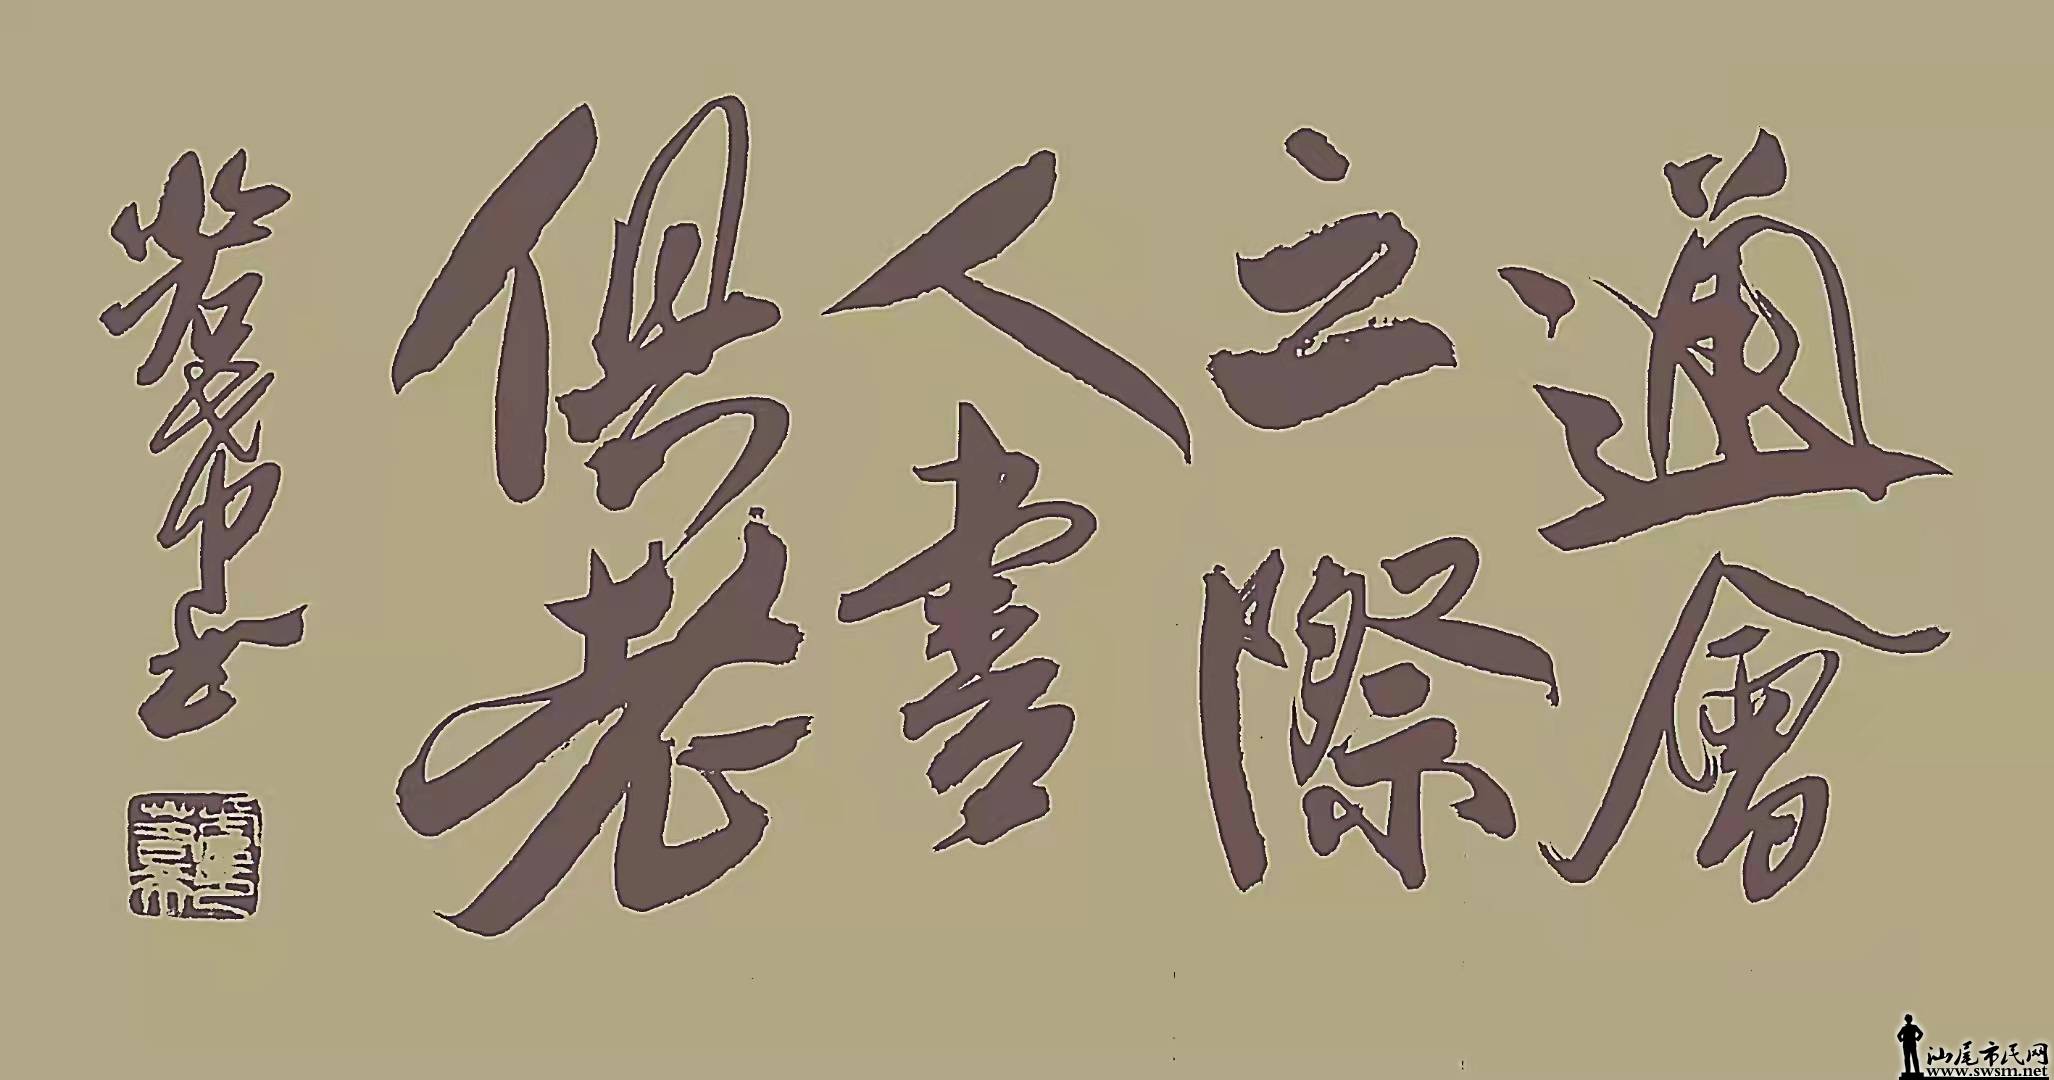 通會
之際
人書
俱老
汕尾市民网
www.swsm.net